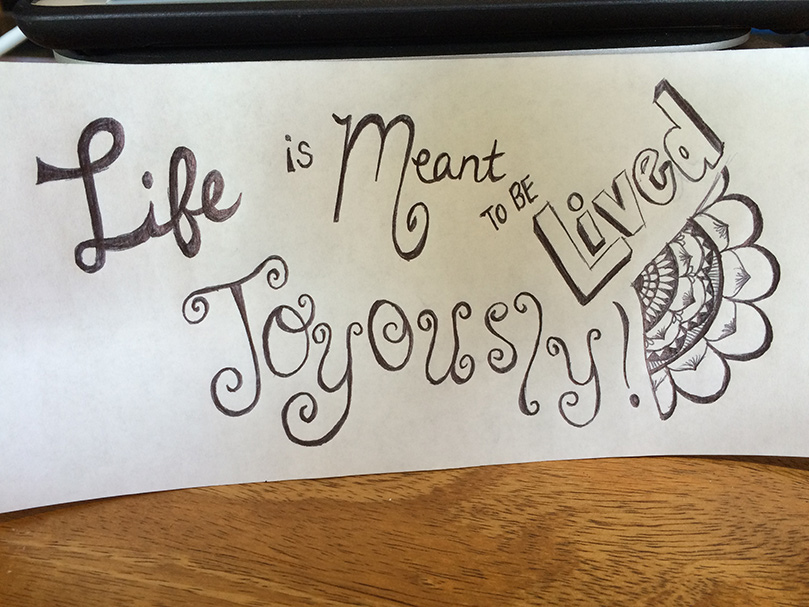 Life is Meant TO BE Lived
Joyously!